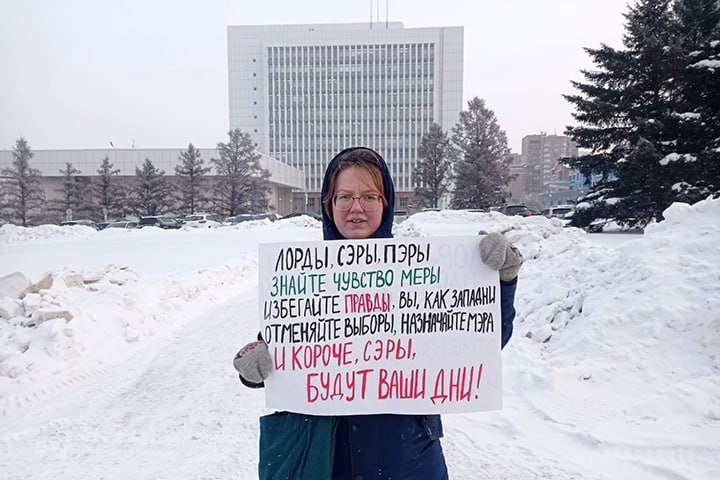 ЛОРДЫ, СЭРЫ, ПЭРЫ
ЗНАЙТЕ ЧУВСТВО МЕРЫ
ИЗБЕГАЙТЕ ПРАВДЫ, ВЫ, КАК ЗАПАДНИ
ОТМЕНЯЙТЕ ВЫБОРЫ, НАЗНАЧАЙТЕ МЭРА
И КОРОЧЕ, СЭРЫ,
БУДУТ ВАШИ ДНИ!